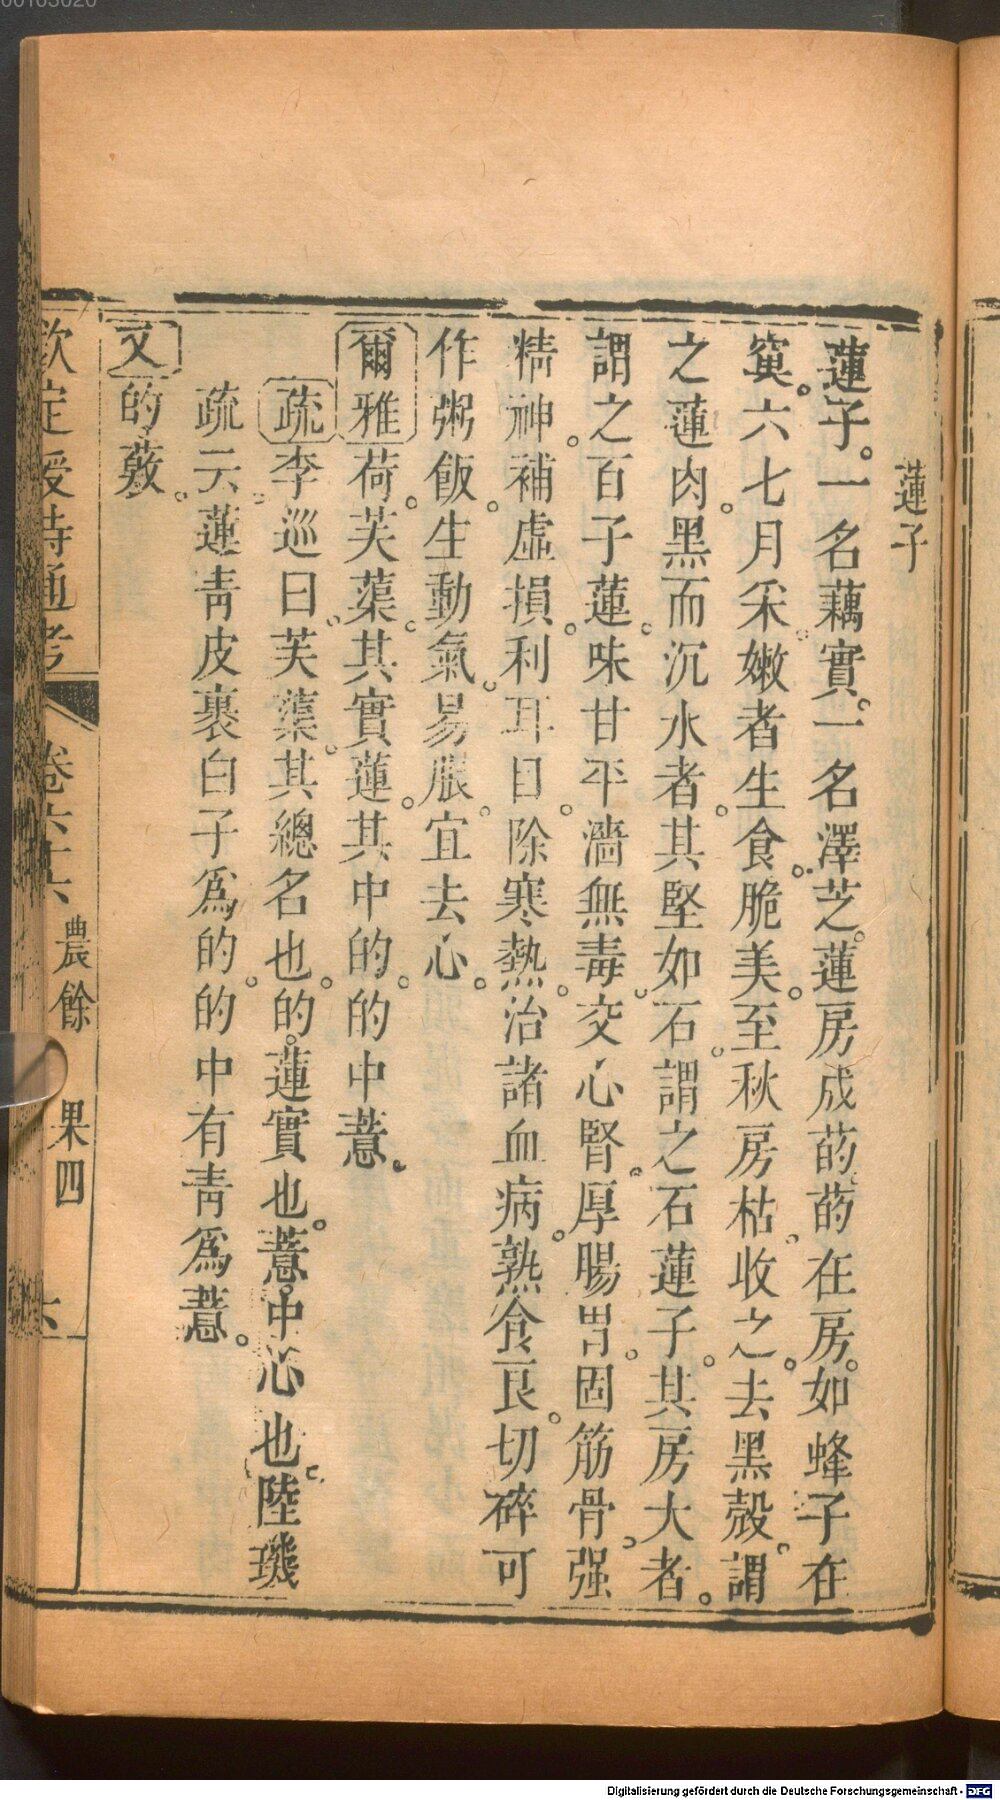 蓮子
蓮子。一名藕實。一名澤芝。蓮房成菂。菂在房。如蜂子在
窠。六七月采嫩者生食。脆美。至秋房枯。收之。去黑殼。謂
之蓮肉。黑而沉水者。其堅如石。謂之石蓮子。其房大者。
謂之百子蓮。味甘平濇無毒。交心腎。厚腸胃。固筋骨。强
精神。補虛損。利耳目。除寒熱。治諸血病。熟食良。切碎可
作粥飯。生動氣。易脹。宜去心。
爾雅荷。芙蕖。其實蓮。其中的。的中薏。
疏李巡曰。芙蕖。其總名也。的。蓮實也。薏。中心也。陸璣
疏云。蓮青皮裹白子為的。的中有青為薏。
又的薂。
欽定授時通考
卷六十六 農餘 果四 六
Digitalisierung gefördert durch die Deutsche Forschungsgemeinschaft - DFG